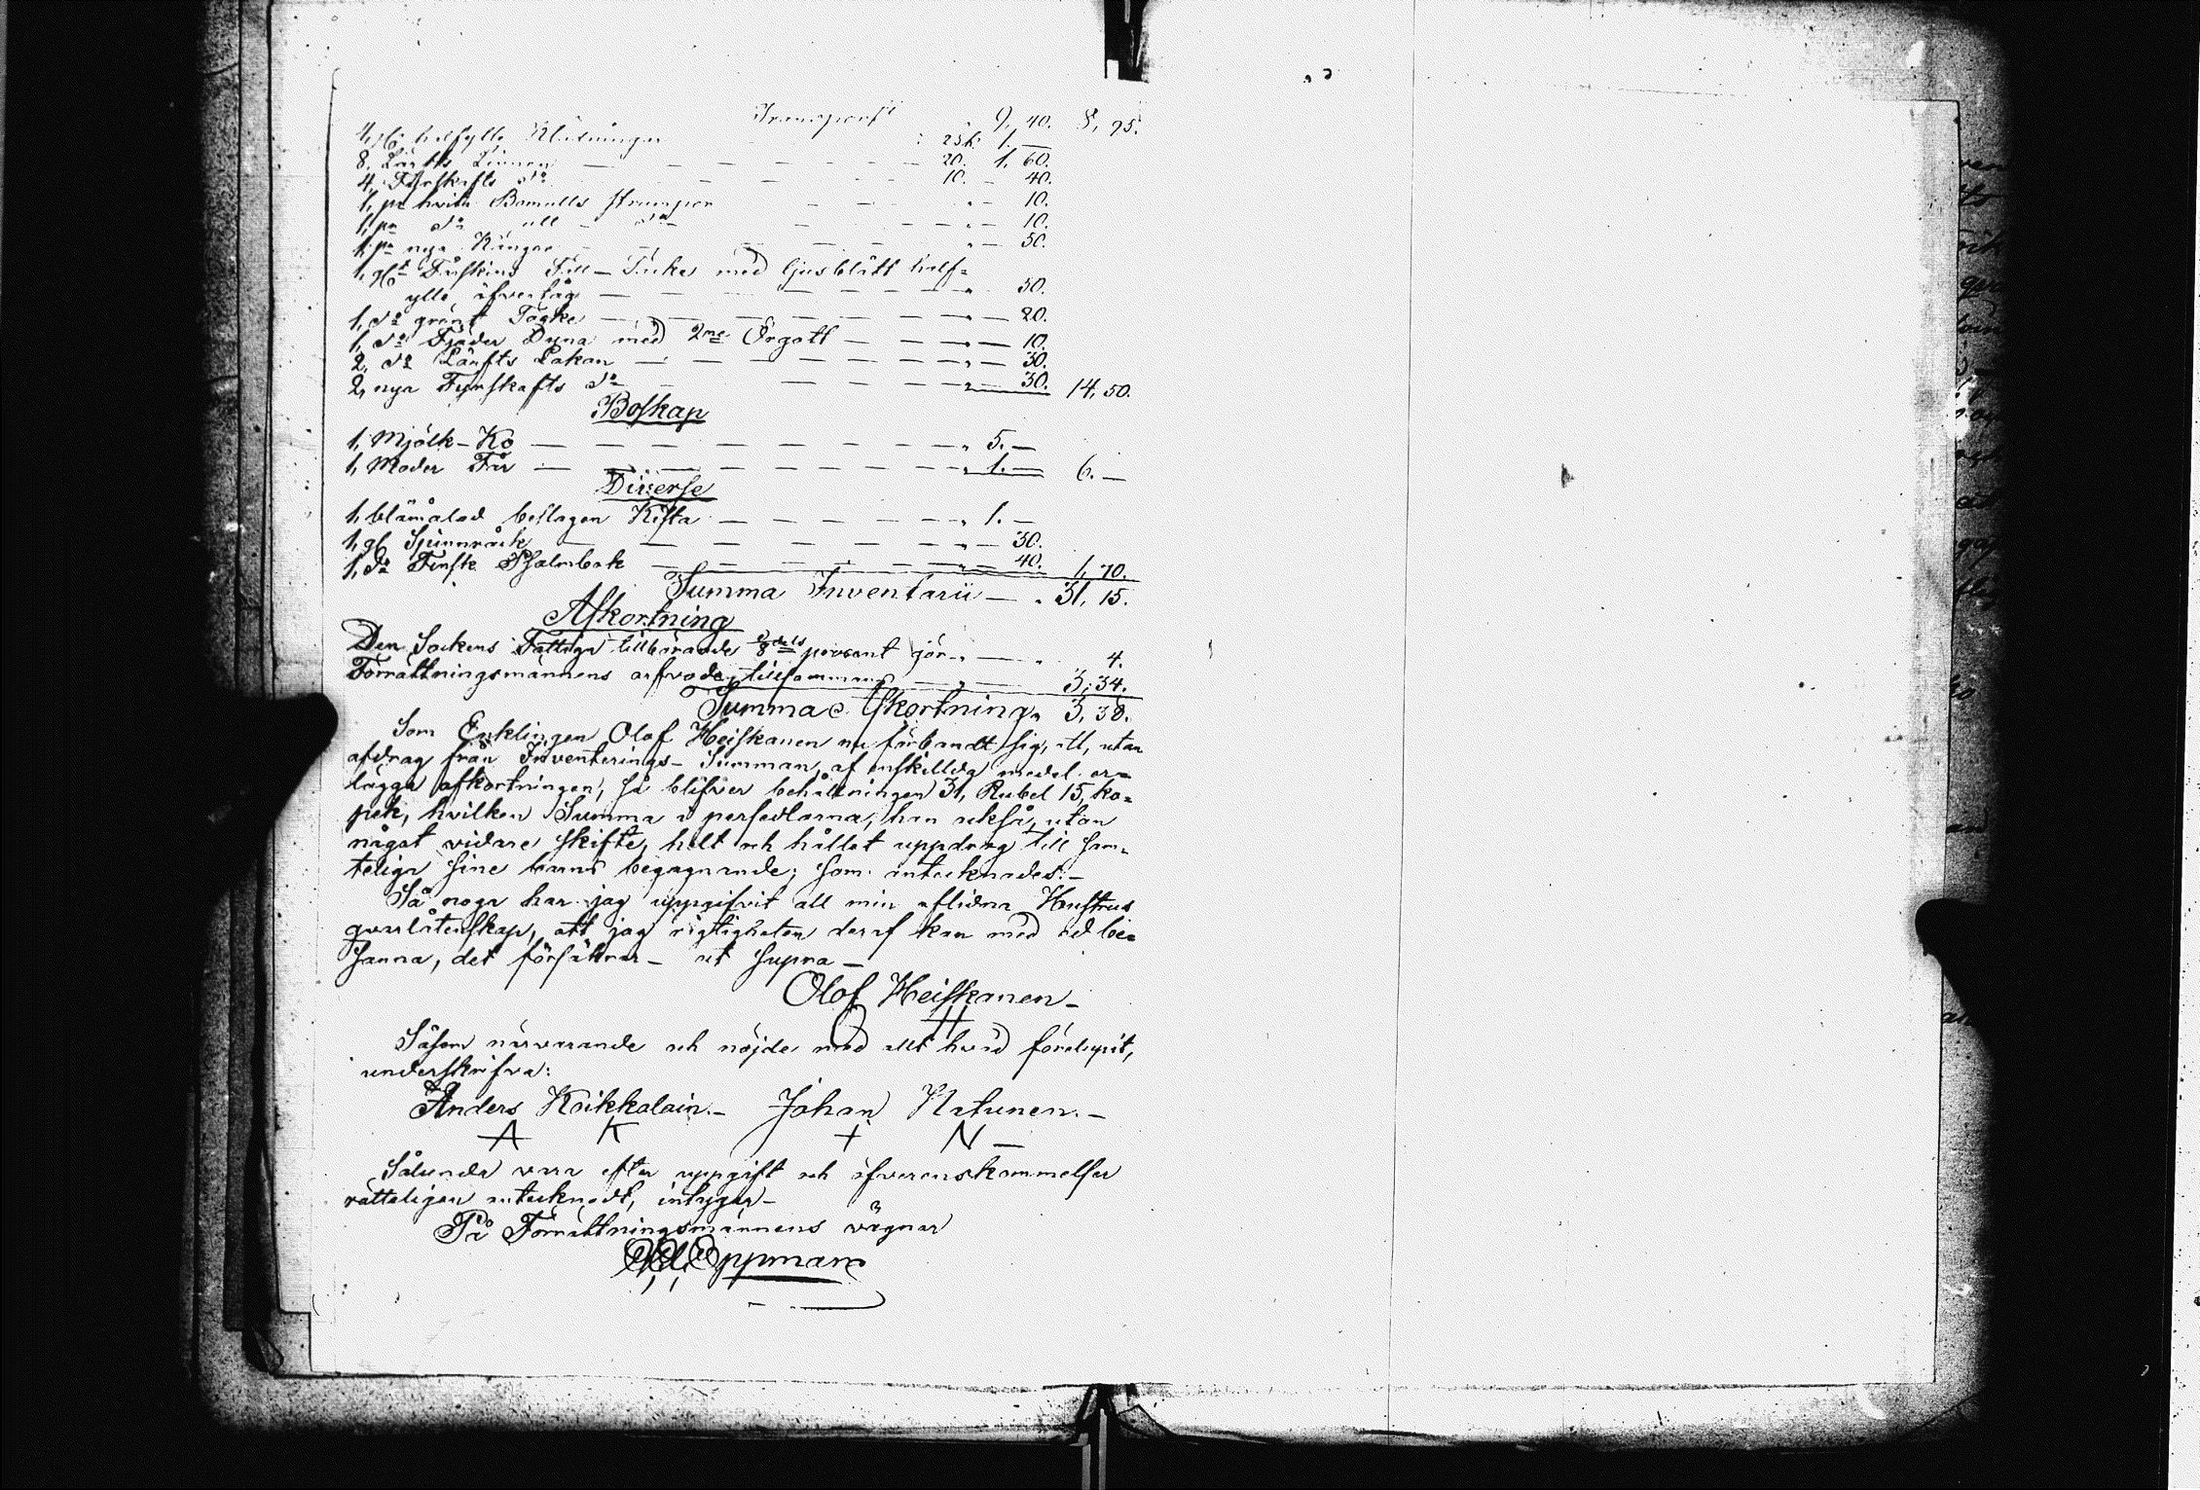 Transport 9, 40. 8, 95.
4, gl. halfylle Klädningar : 25 k: 1. —
8. Lärfts Linnen — — — — — — 20. 1. 60.
4, Fyrskafts do — — — 10. — 40.
1, pr hvita Bomulls strumpor — — — " — 10.
1, pr do ull — do — " — 10.
1, pr nya Kängor — — — — " — 50.
1, gl:t Fårskins Fäll-Täcke med ljusblått half=
ylle öfvertåg — — — — — — " 50.
1, do grönt Täcke — — — — — — " — 20.
1, do Fjäder Dyna med 2ne Örgott — — " — 10.
2, do Lärfts Lakan — — — — — " — 30.
2, nya Fyrskafts do — — — — " — 30. 14, 50.
Boskap
1, Mjölk-Ko — — — — — — — " 5. —
1, Moder Får — — — — — — — " 1. — 6. —
Diverse
1, blåmålad beslagen Kista — — — — — " 1. —
1, gl Spinnråck — — — — — — " — 30.
1, do Finsk Psalmbok — — — — — " — 40. 1, 70.
Summa Inventarii — " 31, 15.
Afkortning
Den Sockens Fattiga tillbörande 1/8 dels procent gör " — " 4.
Förrättningsmännens arfvode, tillsammans — " — 3, 34.
Summa Afkortning " 3, 38.
Som Enklingen Olof Heiskanen nu förbandt sig, att, utan
afdrag från Inventerings-Summan, af enskillda medel er=
lägga afkortningen, så blifver behållningen 31, Rubel 15, ko=
pek, hvilken Summa i persedlarna, han också, utan
något vidare skifte, helt och hållet uppdrog till sam=
teliga sine barns begagnande; som antecknades. —
Så noga har jag uppgifvit all min aflidna Hustrus
qvarlåtenskap, att jag rigtigheten deraf kan med ed be=
sanna, det försäkrar — ut supra —
Olof Heiskanen —
O H
Såsom närvarande och nöjde med allt hvad förelupit,
underskrifva:
Anders Koikkalain. — Johan Natunen. —
A K + N —
Sålunda vara efter uppgift och öfverenskommelser
rätteligen antecknadt, intygar —
På Förrättningsmännens vägnar
Oppman